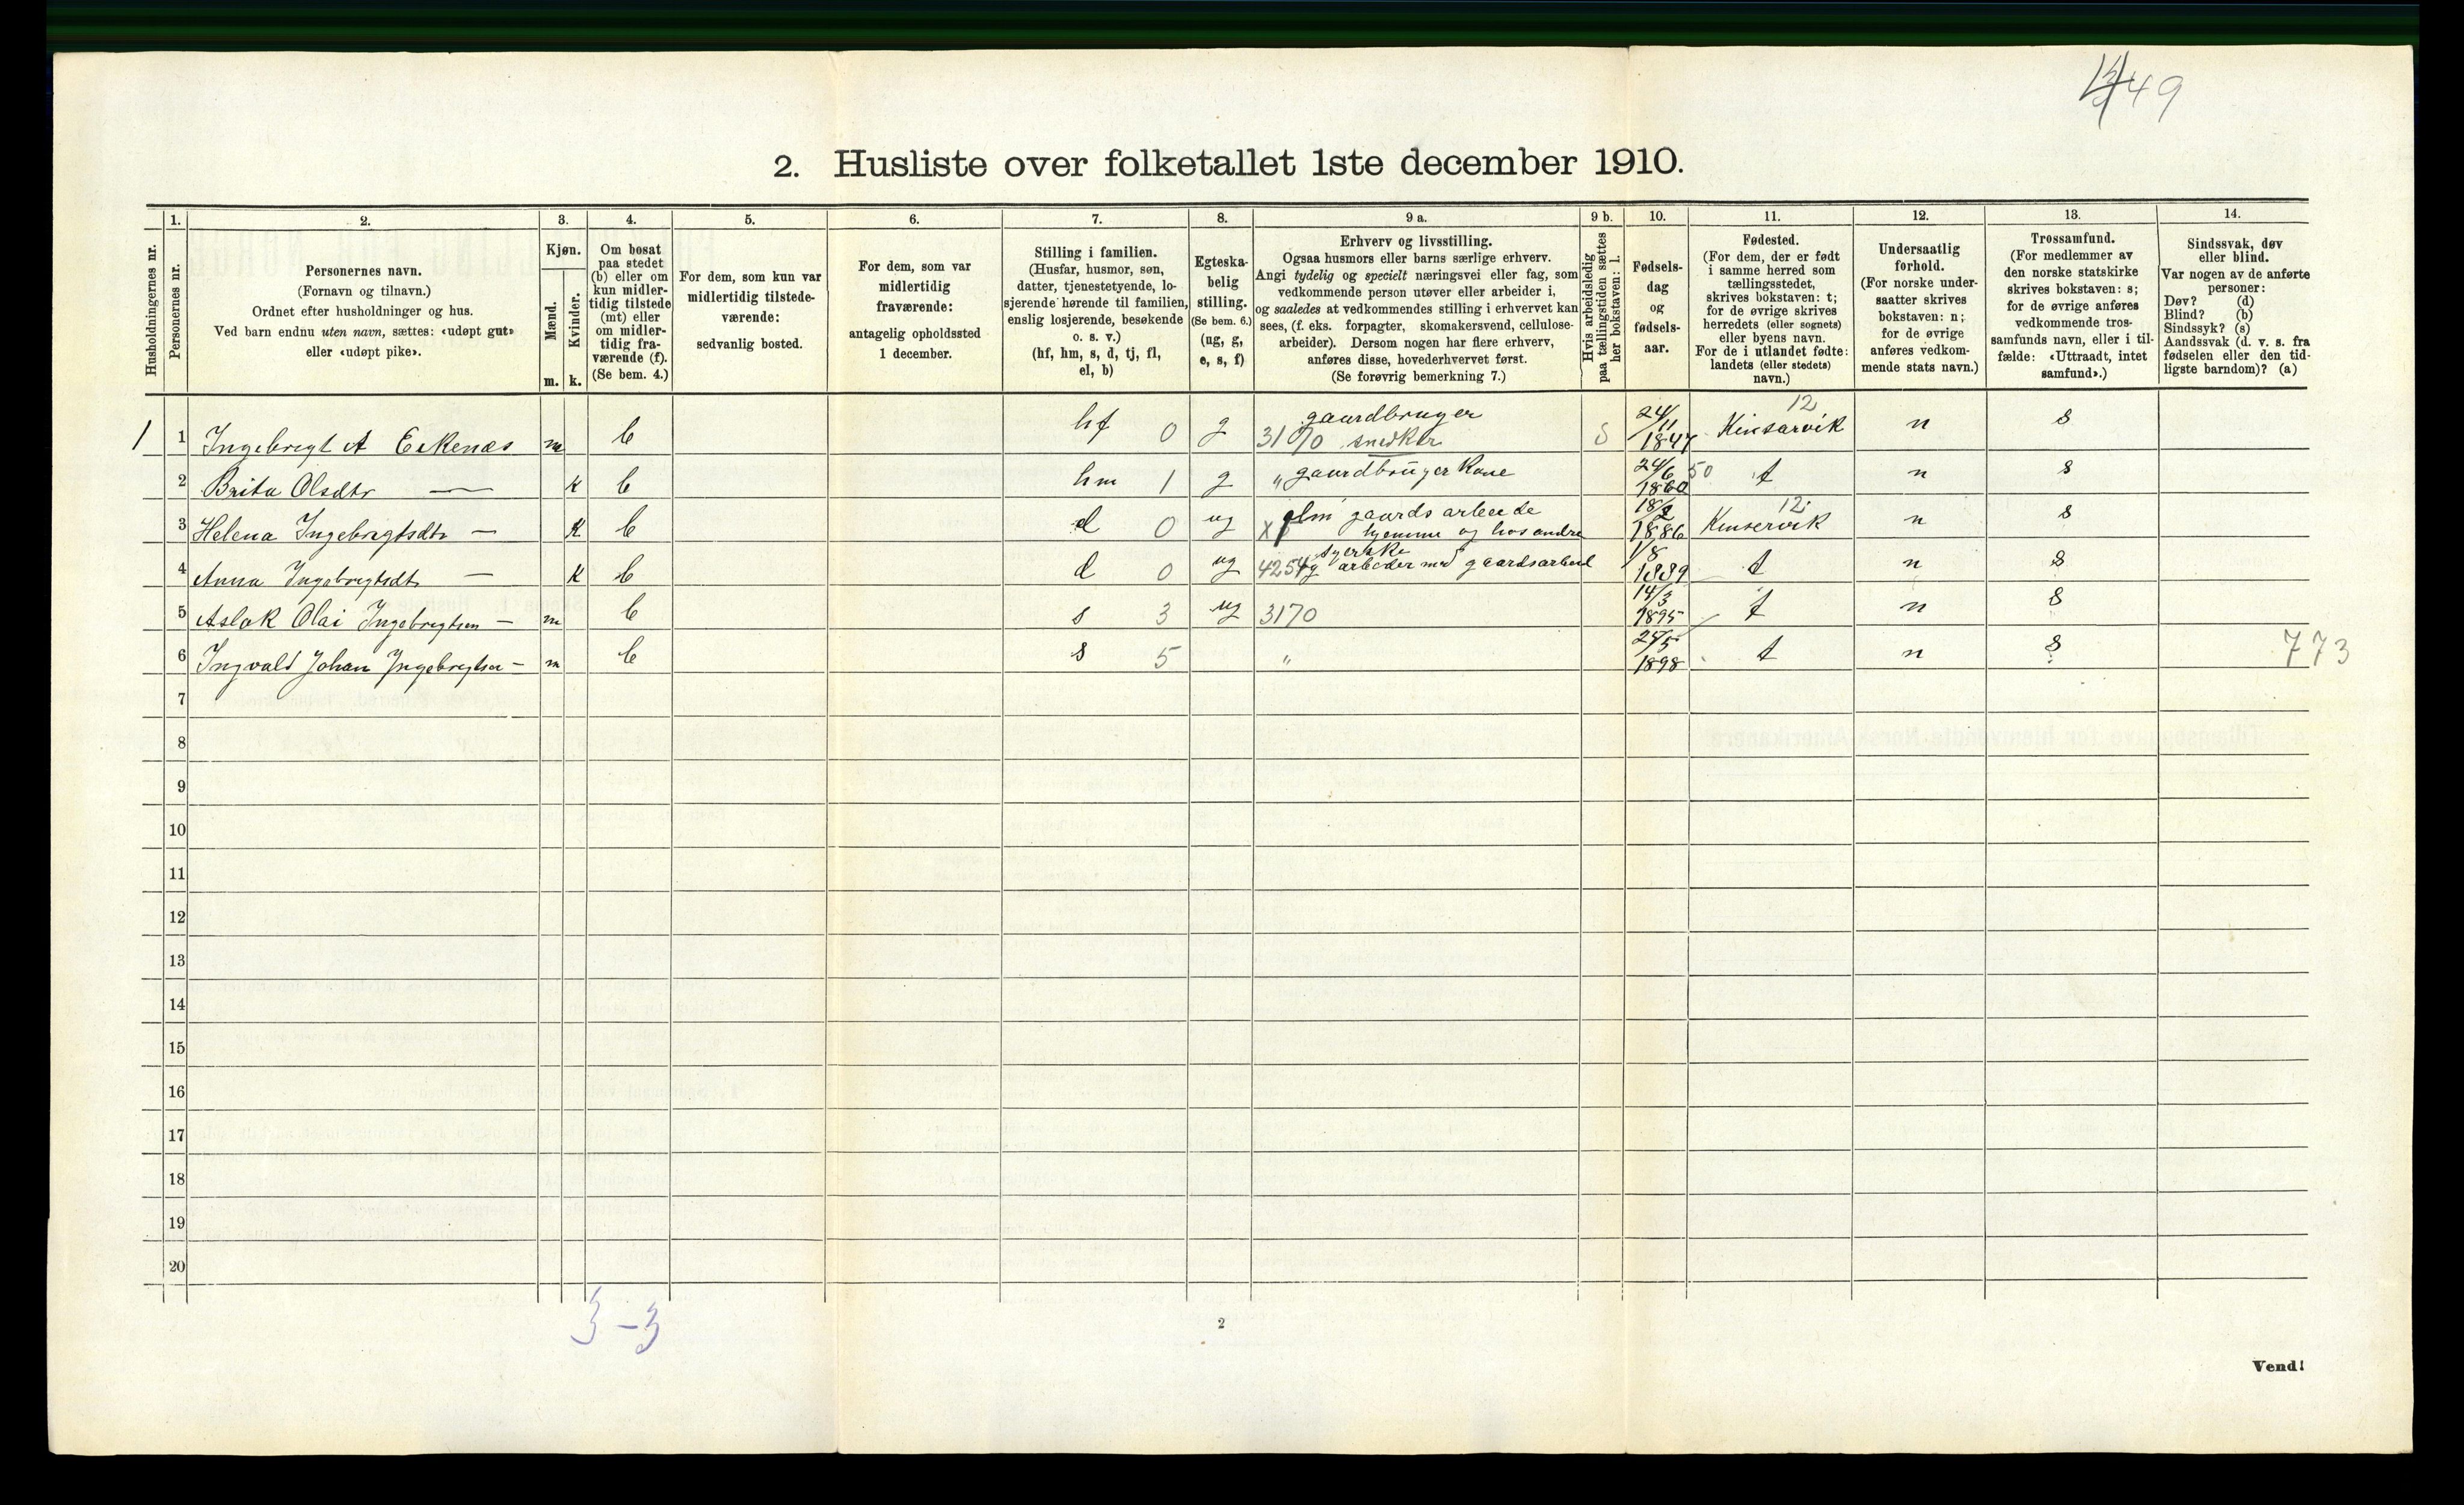 49
2. Husliste over folketallet 1ste december 1910.
Husholdningernes nr.
1.
Personernes nr.
2.
Personernes navn.
(Fornavn og tilnavn.)
Ordnet efter husholdninger og hus.
Ved barn endnu uten navn, sættes: «udøpt gut»
eller «udøpt pike».
3.
Kjøn.
Mænd.
Kvinder.
m. k.
4.
Om bosat
paa stedet
(b) eller om
kun midler-
tidig tilstede
(mt) eller
om midler-
tidig fra-
værende (f).
(Se bem. 4.)
5.
For dem, som kun var
midlertidig tilstede-
værende:
sedvanlig bosted.
6.
For dem, som var
midlertidig
fraværende:
antagelig opholdssted
1 december.
7.
Stilling i familien.
(Husfar, husmor, søn,
datter, tjenestetyende, lo-
sjerende hørende til familien,
enslig losjerende, besøkende
o. s. v.)
(hf, hm, s, d, tj, fl,
el, b)
8.
Egteska-
belig
stilling.
(Se bem. 6.)
(ug, g,
e, s, f)
9 a.
Erhverv og livsstilling.
Ogsaa husmors eller barns særlige erhverv.
Angi tydelig og specielt næringsvei eller fag, som
vedkommende person utøver eller arbeider i,
og saaledes at vedkommendes stilling i erhvervet kan
sees, (f. eks. forpagter, skomakersvend, cellulose-
arbeider). Dersom nogen har flere erhverv,
anføres disse, hovederhvervet først.
(Se forøvrig bemerkning 7.)
9 b.
Hvis arbeidsledig
paa tællingstiden sættes
her bokstaven: l.
10.
Fødsels-
dag
og
fødsels-
aar.
11.
Fødested.
(For dem, der er født
i samme herred som
tællingsstedet,
skrives bokstaven: t;
for de øvrige skrives
herredets (eller sognets)
eller byens navn.
For de i utlandet fødte:
landets (eller stedets)
navn.)
12.
Undersaatlig
forhold.
(For norske under-
saatter skrives
bokstaven: n;
for de øvrige
anføres vedkom-
mende stats navn.)
13.
Trossamfund.
(For medlemmer av
den norske statskirke
skrives bokstaven: s;
for de øvrige anføres
vedkommende tros-
samfunds navn, eller i til-
fælde: «Uttraadt, intet
samfund».)
14.
Sindssvak, døv
eller blind.
Var nogen av de anførte
personer:
Døv? (d)
Blind? (b)
Sindssyk? (s)
Aandssvak (d. v. s. fra
fødselen eller den tid-
ligste barndom)? (a)
1 1 Ingebrigt A Eikenæs m b hf 0 g gaardbruger 3170 snedker S 24/11 1847 Kinsarvik 12 n s
2 Brita Olsdtr — k b hm 1 g " gaardbruger Kone 24/6 1860 50 t n s
3 Helena Ingebrigtsdtr — k b d 0 ug gaards arbeide hjemme og hos andre 18/2 1886 Kinservik 12 n s
4 Anna Ingebrigtsdt — k b d 0 ug 4254 syerske og arbeider med gaardsarbeid 1/8 1889 t n s
5 Aslak Olai Ingebrigtsen — m b s 3 ug 3170 14/3 1895 t n s
6 Ingvald Johan Ingebrigtsen — m b s 5 " 24/5 1898 t n s 773
7
8
9
10
11
12
13
14
15
16
17
18
19
20
3-3
2
Vend!